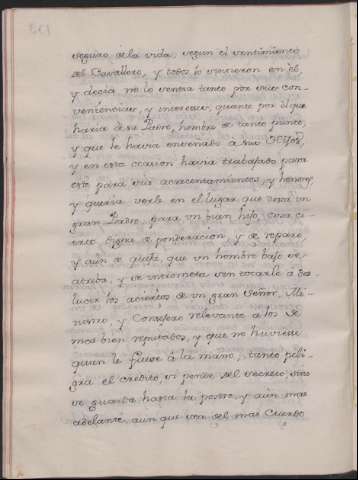 seguro de la vida, segun el sentimiento
del Cavallero, y todos lo sintieron en él
y decia no lo sentia tanto por sus con-
veniencias, y intereses, quanto por el que
haria de su Padre, hombre de tanto punto,
y que le havia enseñado a sus
y en esta ocasion havia trabajado para
para sus acrecentamientos, y honores
y queria verle en el lugar que desea un
gran Padre, para un bien hijo, cosa
digna de ponderacion, y de reparo
y aun de quexa, que un hombre bajo se
atreva, y se interponga en estarle a
lucir los aciertos de un gran Señor, Mi-
nistro, y Consejero relevante a los de
mas bien reputados, y que no huviese
quien le fuese á la mano, tanto peli-
gra el credito, si pende del secreto, sino
se guarda hasta la postre, y aun mas
adelante, aun que sea del mas Cuerdo